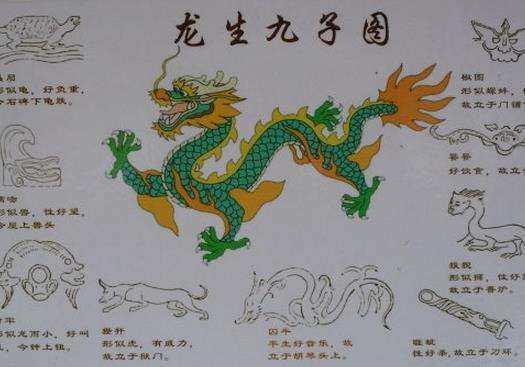 龙生九子图
屃
形似龟，好负重，
今石碑下龟趺。
吻
形似兽，性好望，
今屋上兽头
牢
形似龙而小，好叫
，今钟上钮。
狴犴
形似虎，有威力，
故立于狱门。
囚牛
平生好音乐，故
立于胡琴头上。
椒图
形似螺蚌，
故立于门铺
好饮食，故立于
狻猊
形似狮，性好
故立于香炉。
睚眦
性好杀，故立于刀环。